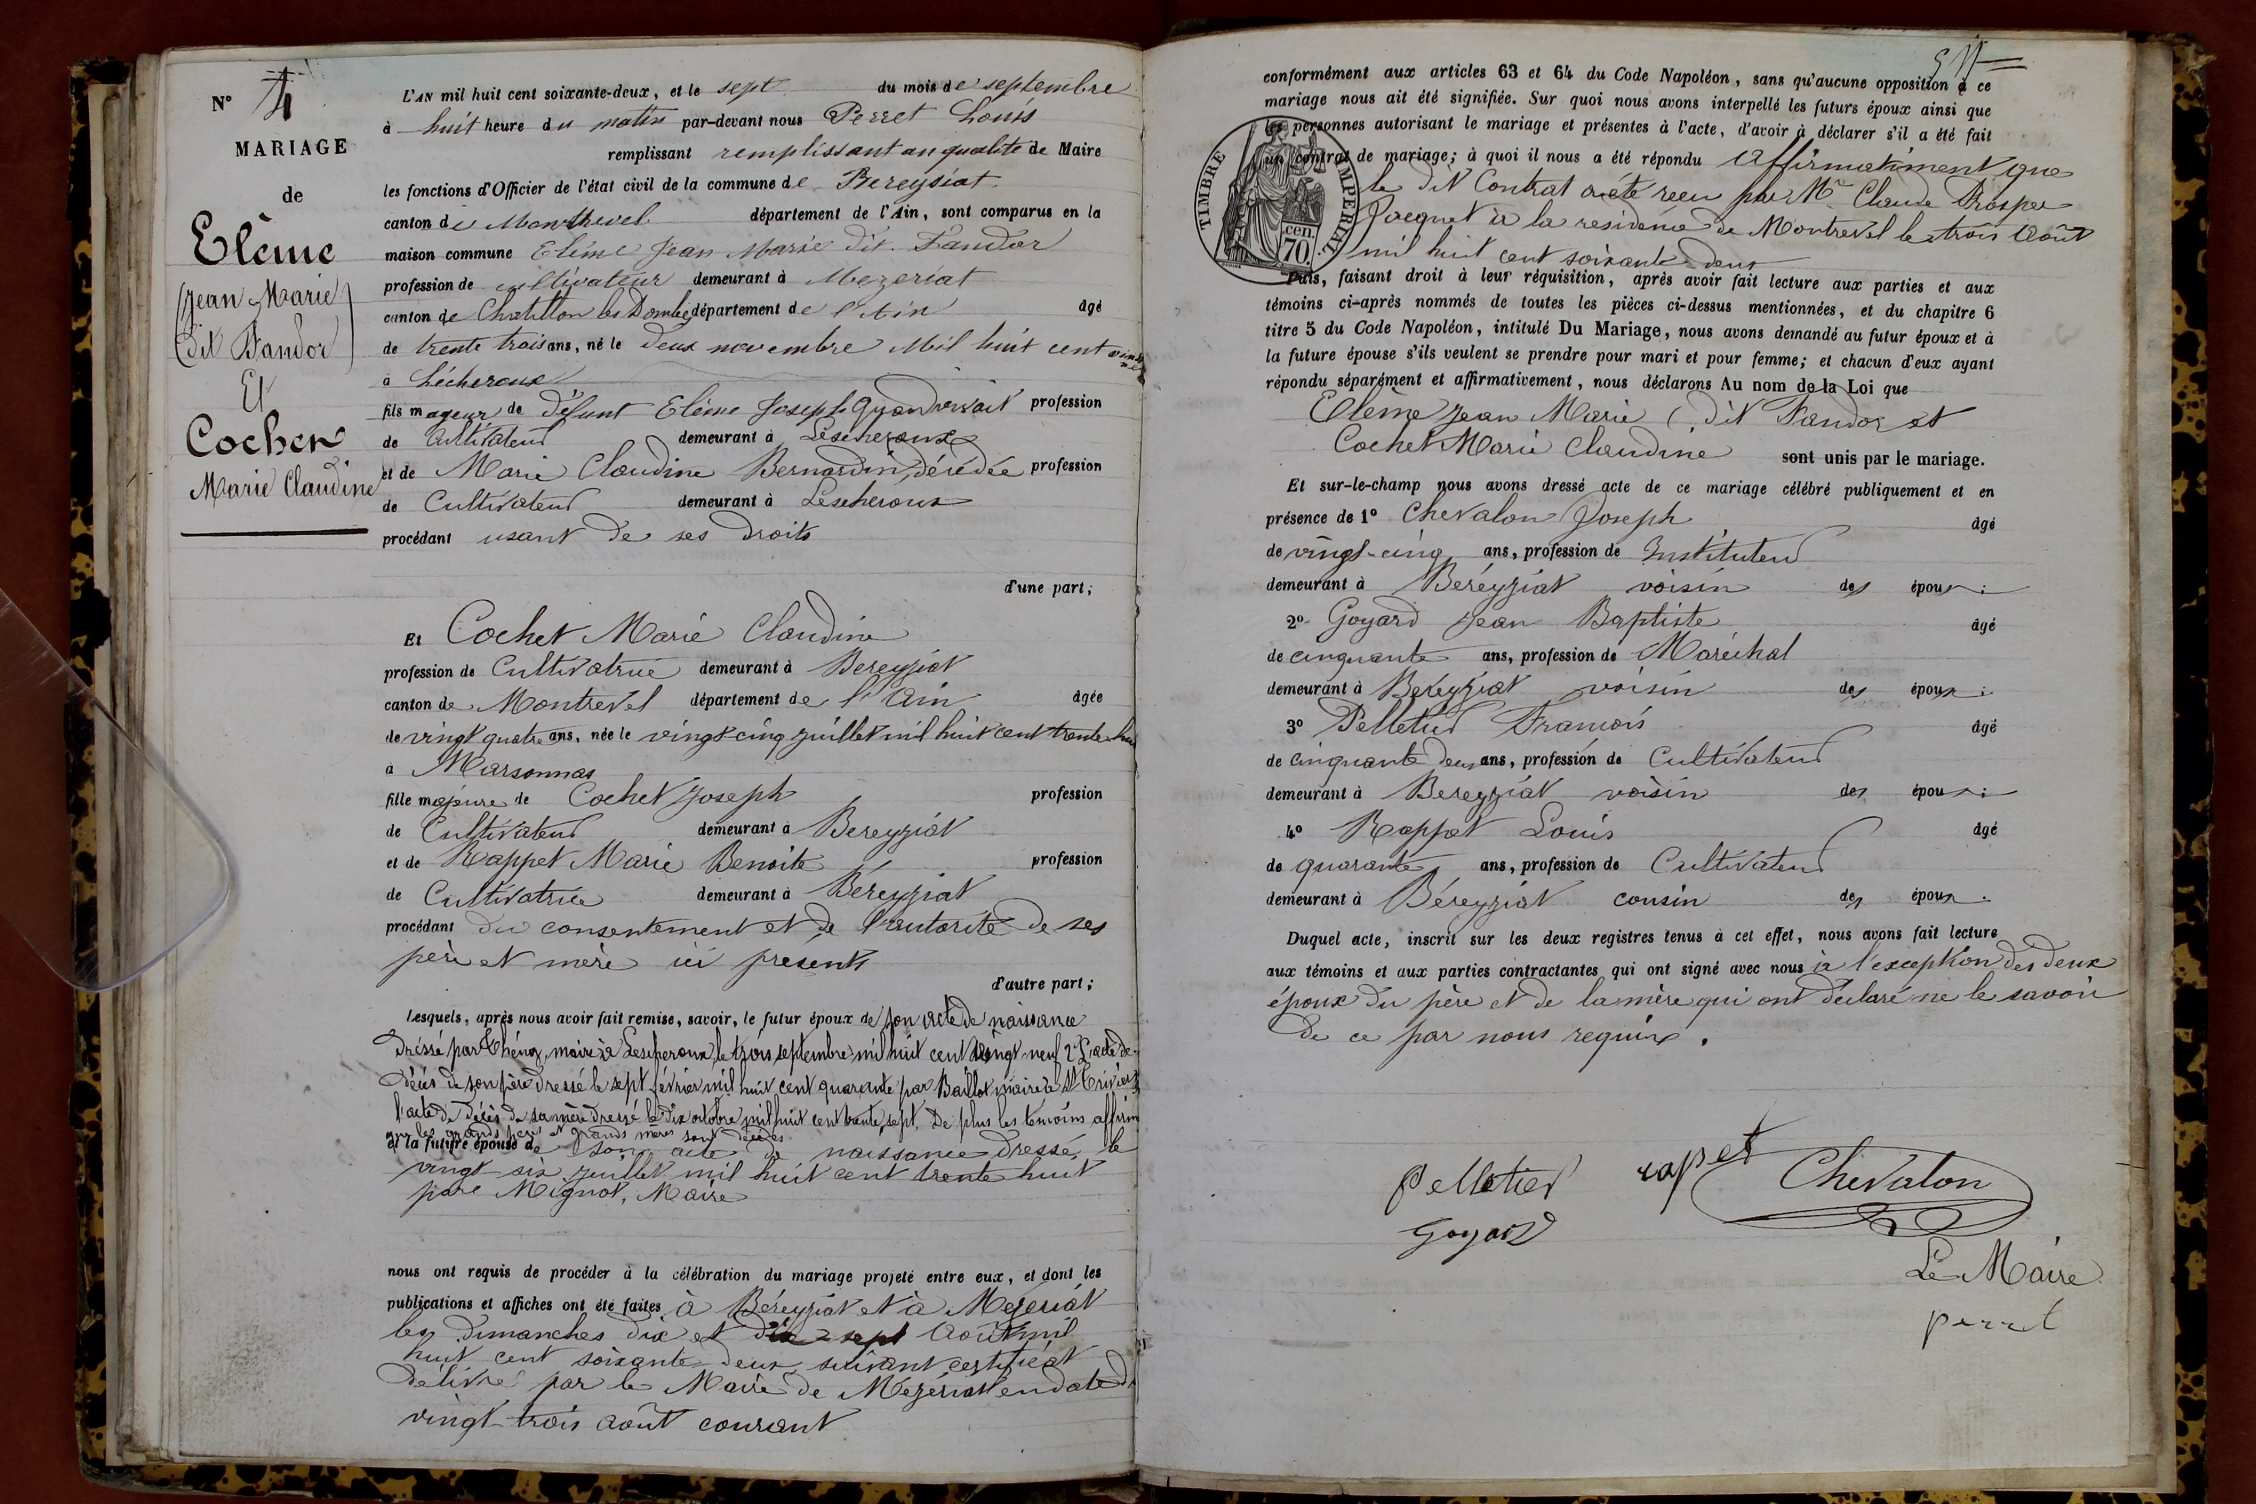 N° 4
MARIAGE
de
Elème
(Jean Marie)
(dit Fandor)
Et
Cochet
Marie Claudine
L'AN mil huit cent soixante-deux, et le sept du mois de septembre
à huit heure du matin par-devant nous Perret Louis
remplissant remplissant en qualité de Maire
les fonctions d'Officier de l'état civil de la commune de Bereysiat
canton de Montrevel département de l'Ain, sont comparus en la
maison commune Elème Jean Marie dit Fandor
profession de cultivateur demeurant à Mezeriat
canton de Chatillon les Dombes département de l'Ain âgé
de trente trois ans, né le deux novembre mil huit cent vingt
à Lécheroux
fils mageur de défunt Elème Joseph quand vivait profession
de Cultivateur demeurant à Lescheroux
et de Marie Claudine Bernardin, décédée profession
de Cultivateur demeurant à Lescheroux
procédant usant de ses droits
d'une part;
Et Cochet Marie Claudine
profession de Cultivatrice demeurant à Bereyziat
canton de Montrevel département de l'Ain âgée
de vingt quatre ans, née le vingt-cinq juillet mil huit cent trente huit
à Marsonnas
fille majeure de Cochet Joseph profession
de Cultivateur demeurant à Bereyziat
et de Rappet Marie Benoite profession
de Cultivatrice demeurant à Béreyziat
procédant du consentement et de l'autorité de ses
père et mère ici présents
d'autre part;
Lesquels, après nous avoir fait remise, savoir, le futur époux de son acte de naissance
dressé par Thénoz, maire à Lescheroux, le trois septembre mil huit cent vingt-neuf 2° L'acte de
décès de son père dressé le sept février mil huit cent quarante par Baillot maire de St Trivier
l'acte de décès de sa mère dressé le dix octobre mil huit cent trente sept. De plus les témoins affirm
que les grands pères et grands mères sont décédés
et la future épouse de son acte de naissance dressé le
vingt-six juillet mil huit cent trente huit
par Mignot, Maire
nous ont requis de procéder à la célébration du mariage projeté entre eux, et dont les
publications et affiches ont été faites à Béreyziat et à Mezeriat
les dimanches dix et dix sept août mil
huit cent soixante-deux, suivant certificat
délivré par le Maire de Mézériat en date du
vingt-trois août courant
conformément aux articles 63 et 64 du Code Napoléon, sans qu'aucune opposition à ce
mariage nous ait été signifiée. Sur quoi nous avons interpellé les futurs époux ainsi que
les personnes autorisant le mariage et présentes à l'acte, d'avoir à déclarer s'il a été fait
un contrat de mariage; à quoi il nous a été répondu affirmativement que
le dit Contrat a été reçu par Me Claude Prosper
Jacquet à la résidence de Montrevel le trois Août
mil huit cent soixante-deux
TIMBRE IMPERIAL
cen.
70
Puis, faisant droit à leur réquisition, après avoir fait lecture aux parties et aux
témoins ci-après nommés de toutes les pièces ci-dessus mentionnées, et du chapitre 6
titre 5 du Code Napoléon, intitulé Du Mariage, nous avons demandé au futur époux et à
la future épouse s'ils veulent se prendre pour mari et pour femme; et chacun d'eux ayant
répondu séparément et affirmativement, nous déclarons Au nom de la Loi que
Elème Jean Marie (dit Fandor et
Cochet Marie Claudine sont unis par le mariage.
Et sur-le-champ nous avons dressé acte de ce mariage célébré publiquement et en
présence de 1° Chevalon Joseph âgé
de vingt-cinq ans, profession de Instituteur
demeurant à Beréyziat voisin des époux;
2° Goyard Jean Baptiste âgé
de cinquante ans, profession de Maréchal
demeurant à Beréyziat voisin des époux;
3° Pelletier Francois âgé
de cinquante deux ans, profession de Cultivateur
demeurant à Bereyziat voisin des époux;
4° Rappet Louis âgé
de quarante ans, profession de Cultivateur
demeurant à Béreyziat cousin des époux.
Duquel acte, inscrit sur les deux registres tenus à cet effet, nous avons fait lecture
aux témoins et aux parties contractantes qui ont signé avec nous à l'exception des deux
époux du père et de la mère qui ont déclaré ne le savoir
de ce par nous requis.
Pelletier rapet Chevalon
Goyard
Le Maire
perret